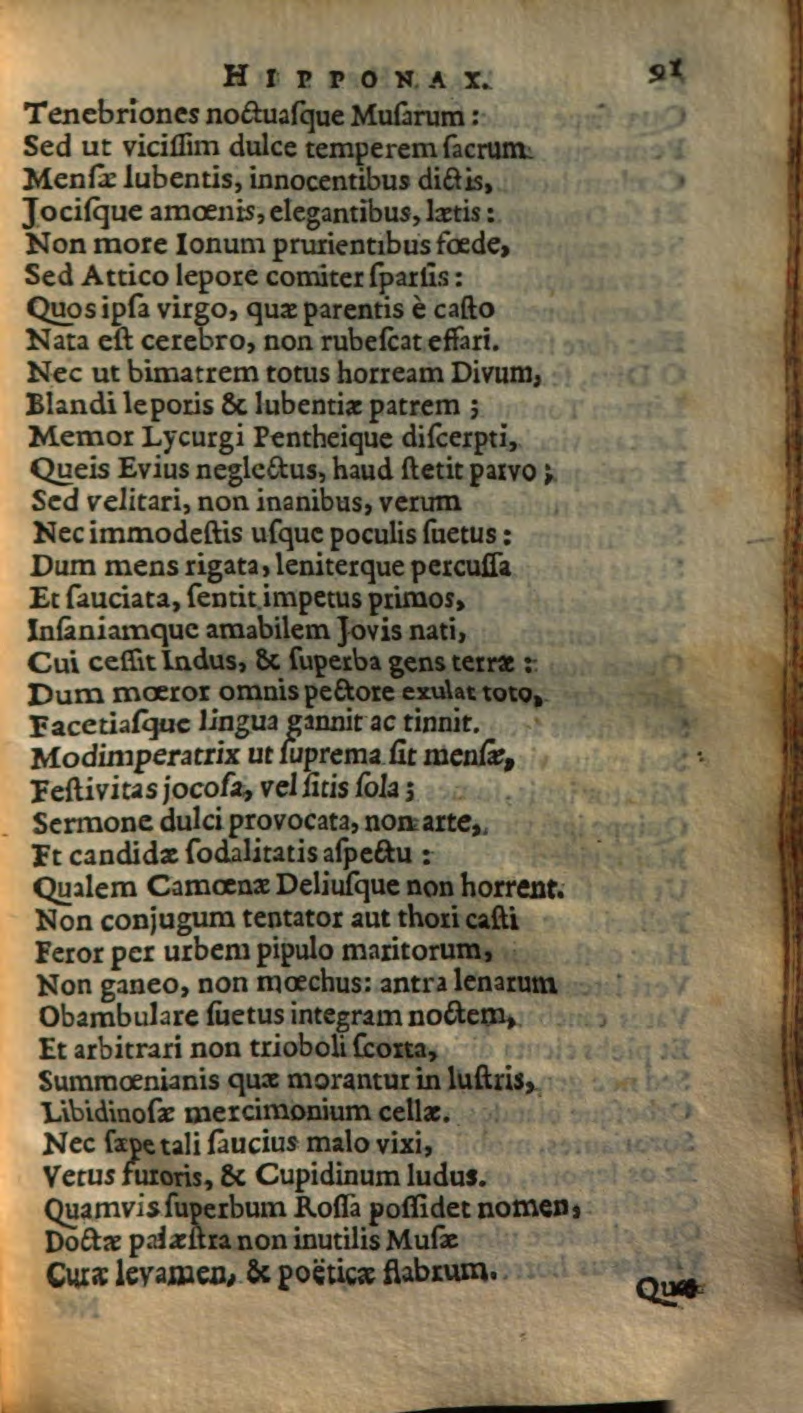 HIPPONAX. 91
Tenebriones noctuaſque Muſarum :
Sed ut viciſſim dulce temperem ſacrum
Menſæ lubentis, innocentibus dictis,
Jociſque amœnis, elegantibus, lætis :
Non more Ionum prurientibus fœde,
Sed Attico lepore comiter ſparſis :
Quos ipſa virgo, quæ parentis è caſto
Nata eſt cerebro, non rubeſcat effari.
Nec ut bimatrem totus horream Divum,
Blandi leporis & lubentiæ patrem ;
Memor Lycurgi Pentheique diſcerpti,
Queis Evius neglectus, haud ſtetit parvo ;
Sed velitari, non inanibus, verum
Nec immodeſtis uſque poculis ſuetus :
Dum mens rigata, leniterque percuſſa
Et ſauciata, ſentit impetus primos,
Inſaniamque amabilem Jovis nati,
Cui ceſſit Indus, & ſuperba gens terræ :
Dum mœror omnis pectore exulat toto,
Facetiaſque lingua gannit ac tinnit.
Modimperatrix ut ſuprema ſit menſæ,
Feſtivitas jocoſa, vel ſitis ſola ;
Sermone dulci provocata, non arte,
Et candidæ ſodalitatis aſpectu :
Qualem Camœnæ Deliuſque non horrent.
Non conjugum tentator aut thori caſti
Feror per urbem pipulo maritorum,
Non ganeo, non mœchus: antra lenarum
Obambulare ſuetus integram noctem,
Et arbitrari non trioboli ſcorta,
Summœnianis quæ morantur in luſtris,
Libidinoſæ mercimonium cellæ.
Nec ſæpe tali ſaucius malo vixi,
Vetus furoris, & Cupidinum ludus.
Quamvis ſuperbum Roſſa poſſidet nomen,
Doctæ palæſtra non inutilis Muſæ
Curæ levamen, & poëticæ flabrum.
Quæ